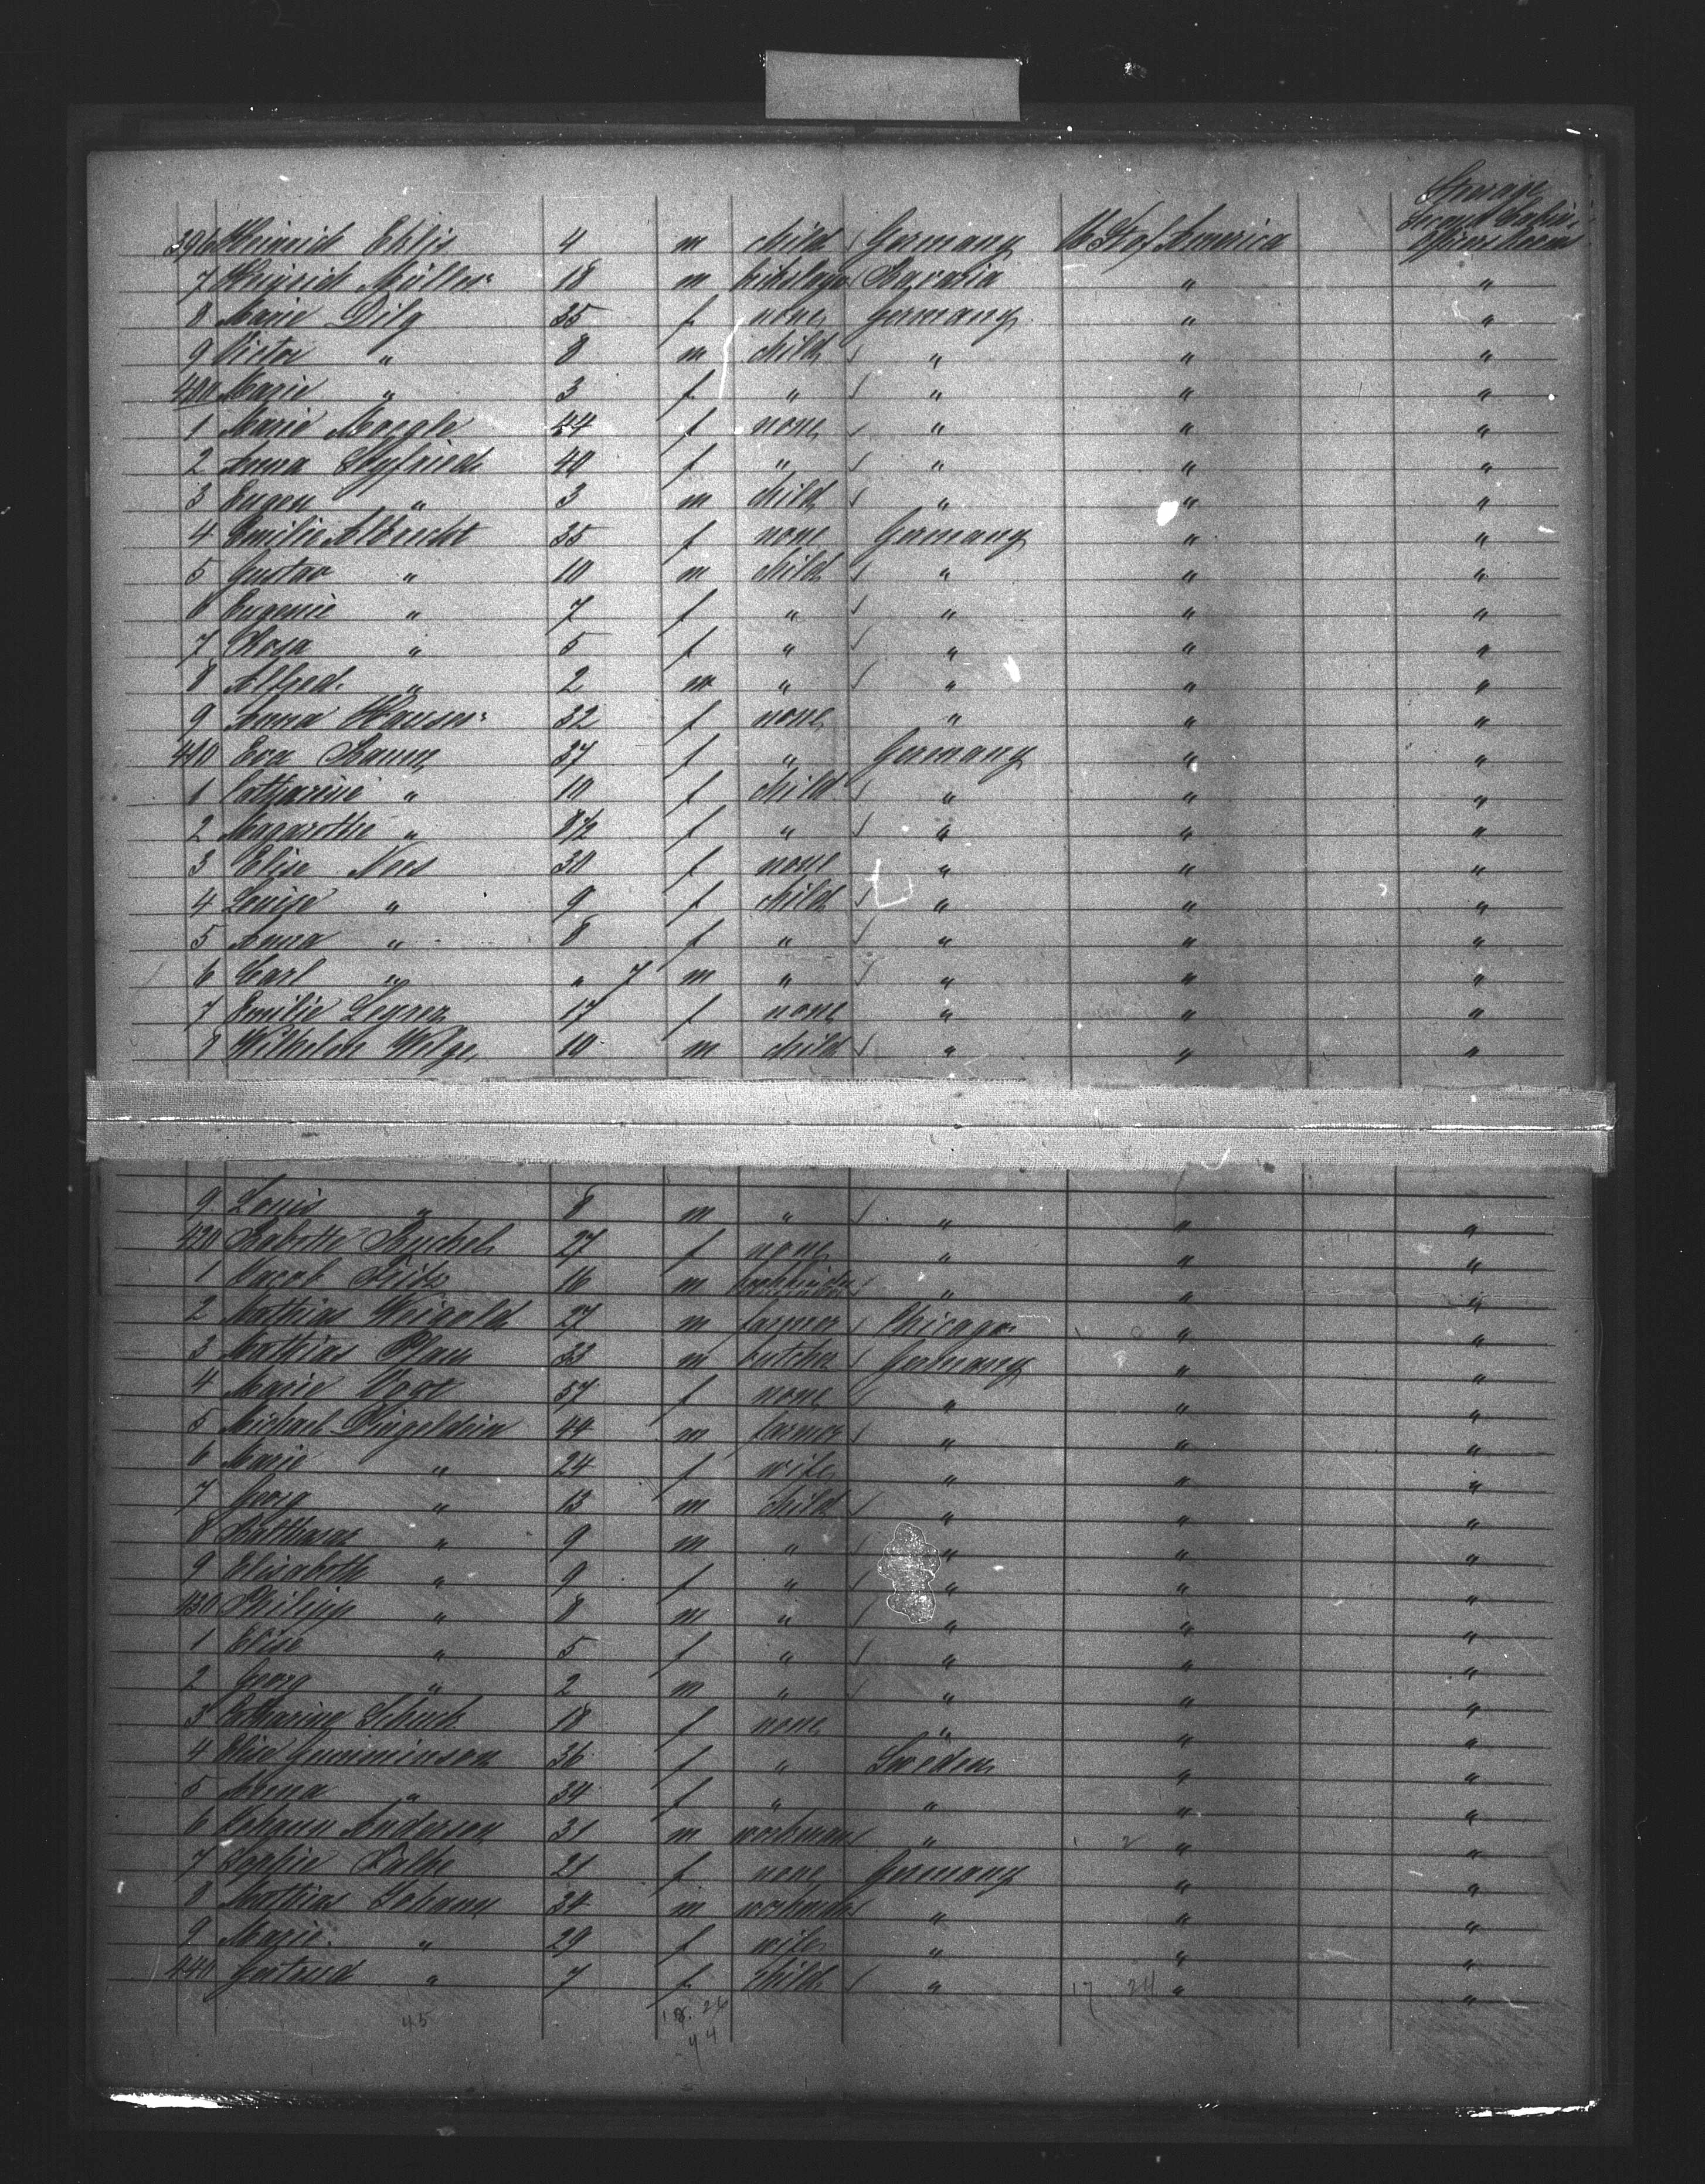 Steerage
Second Cabin
396 Heinrich Ehlis 4 m child Germany U St of America
7 Heinrich Müller 18 m bricklayer Bavaria " "
8 Marie Dilg 35 f none Germany " "
9 Victor " 8 m child " " "
400 Marie " 3 f " " " "
1 Marie 44 f none " " "
2 Anna Seyfried 40 f " " " "
3 Eugen " 3 m child " " "
4 Emilie Albrecht 35 f none Germany " "
5 Gustav " 10 m child " " "
6 Eugenie " 7 f " " " "
7 Rosa " 5 f " " " "
8 Alfred " 2 m " " " "
9 Anna Hauser 32 f none " " "
410 Eva Baum 37 f " Germany " "
1 Catharine " 10 f child " " "
2 Magarethe " 8 1/2 f " " " "
3 Elise Nees 30 f none " " "
4 Louise " 9 f child " " "
5 Anna " 8 f " " " "
6 Carl " " 7 m " " " "
7 Emilie 17 f none " " "
8 Wilhelm Wilge 10 m child " " "
9 Louis " 8 m " " " "
420 Babette Buchel 27 f none " " "
1 Jacob 16 m bookbinder " " "
2 Mathias Weigold 27 m farmer Chicago " "
3 Mathias Pfam 33 m butcher Germany " "
4 Marie Vogt 57 f none " " "
5 Michael Dingeldein 44 m farmer " " "
6 Marie " 24 f wife " " "
7 Georg " 13 m child " " "
8 Balthasar " 9 m " " " "
9 Elisabeth " 9 f " " " "
430 Philipp " 8 m " " " "
1 Elise " 5 f " " " "
2 Georg " 2 m " " " "
3 Catharine Schuch 18 f none " " "
4 Elise Gumminson 36 f " Sweden " "
5 Anna " 34 f " " " "
6 Johann Anderson 31 m workman " " "
7 Sophie 21 f none Germany " "
8 Mathias Johann 34 m workman " " "
9 Marie " 29 f wife " " "
440 Gertrud " 7 f child " 17 24 " "
45 18. 26
44